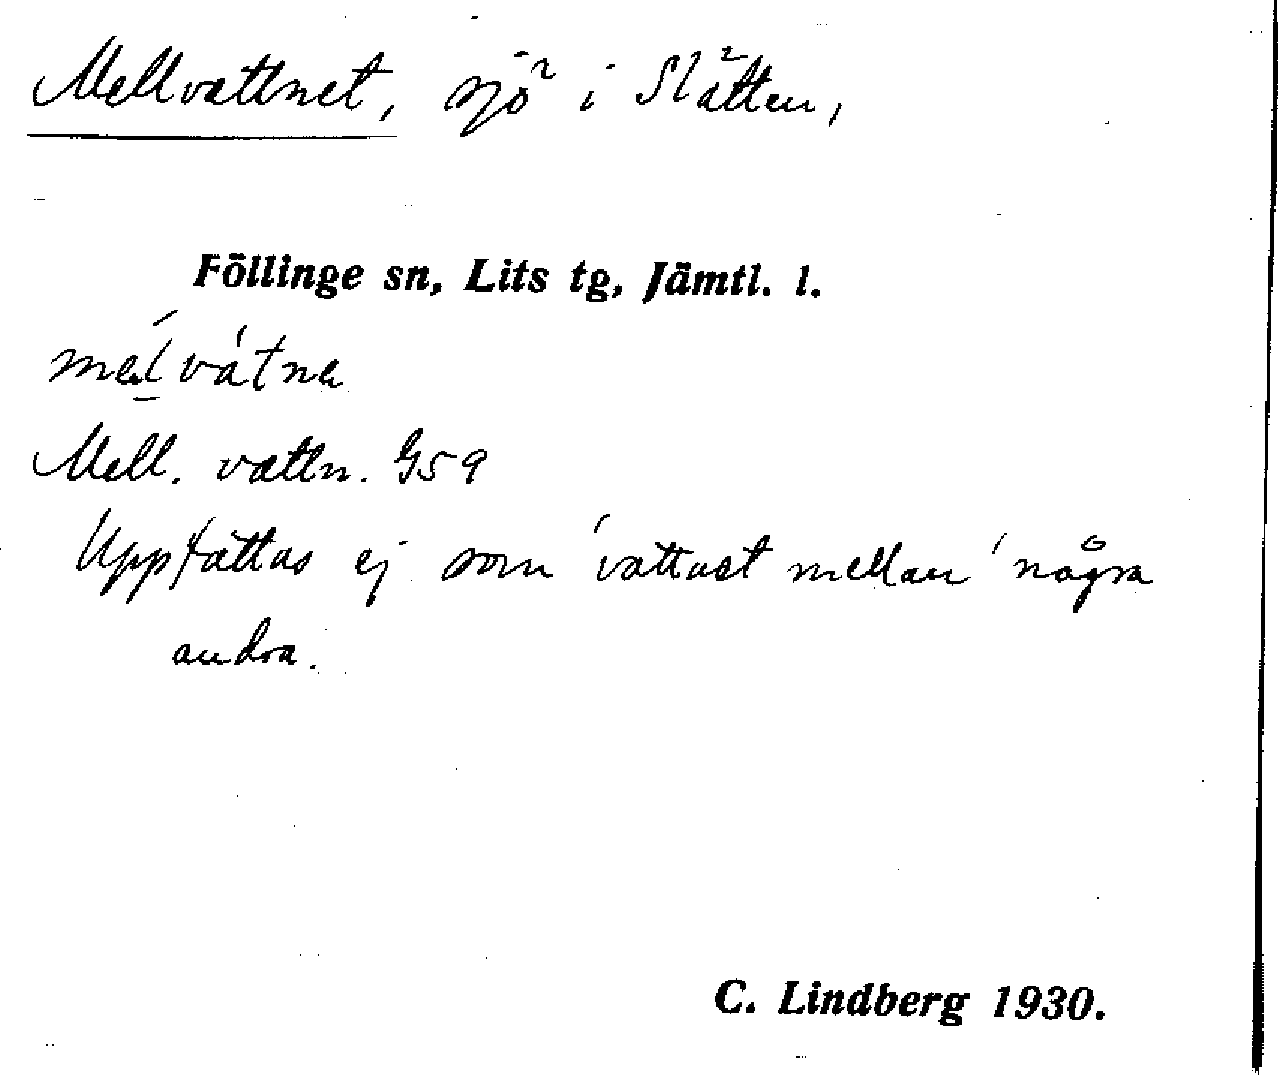 Mellvattnet, sjö i Slätten,
Föllinge sn, Lits tg, Jämtl. l.
mel vátna
Mell. vattn. G59
Uppfattas ej som 'vattnet mellan' några
andra.
C. Lindberg 1930.